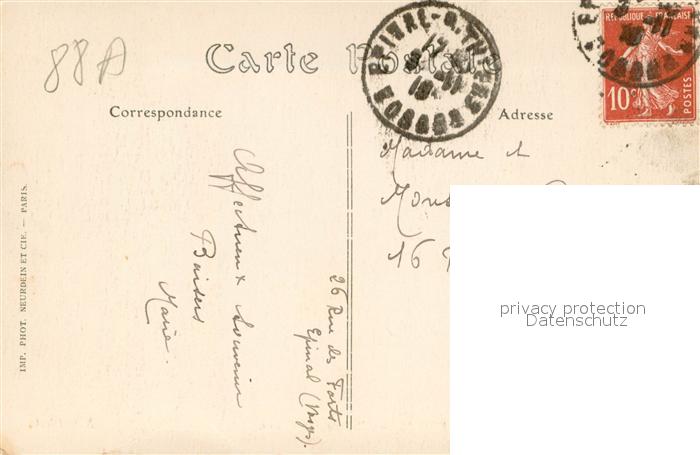 88A
Carte Postale
Correspondance
Adresse
EPINAL
VOSGES
REPUBLIQUE FRANÇAISE
10c
POSTES
Madame et
16
Affectueux Souvenir
Baisers
Marie.
26 Rue des Forts
Epinal (Vosges).
IMP. PHOT. NEURDEIN ET CIE. — PARIS.
privacy protection
Datenschutz